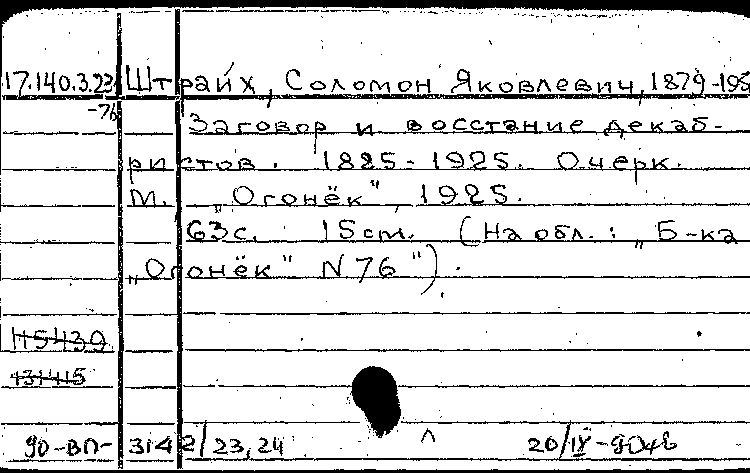 17.140.3.23 Штрайх, Соломон Яковлевич, 1879-195
-76
Заговор и восстание декаб-
ристов. 1825-1925. Очерк.
М. „Огонёк", 1925.
63с. 15cm. (На обл.: „Б-ка
„Огонёк" N 76").
115439
131415
90-ВП- 3142/23,24 20/IX-90